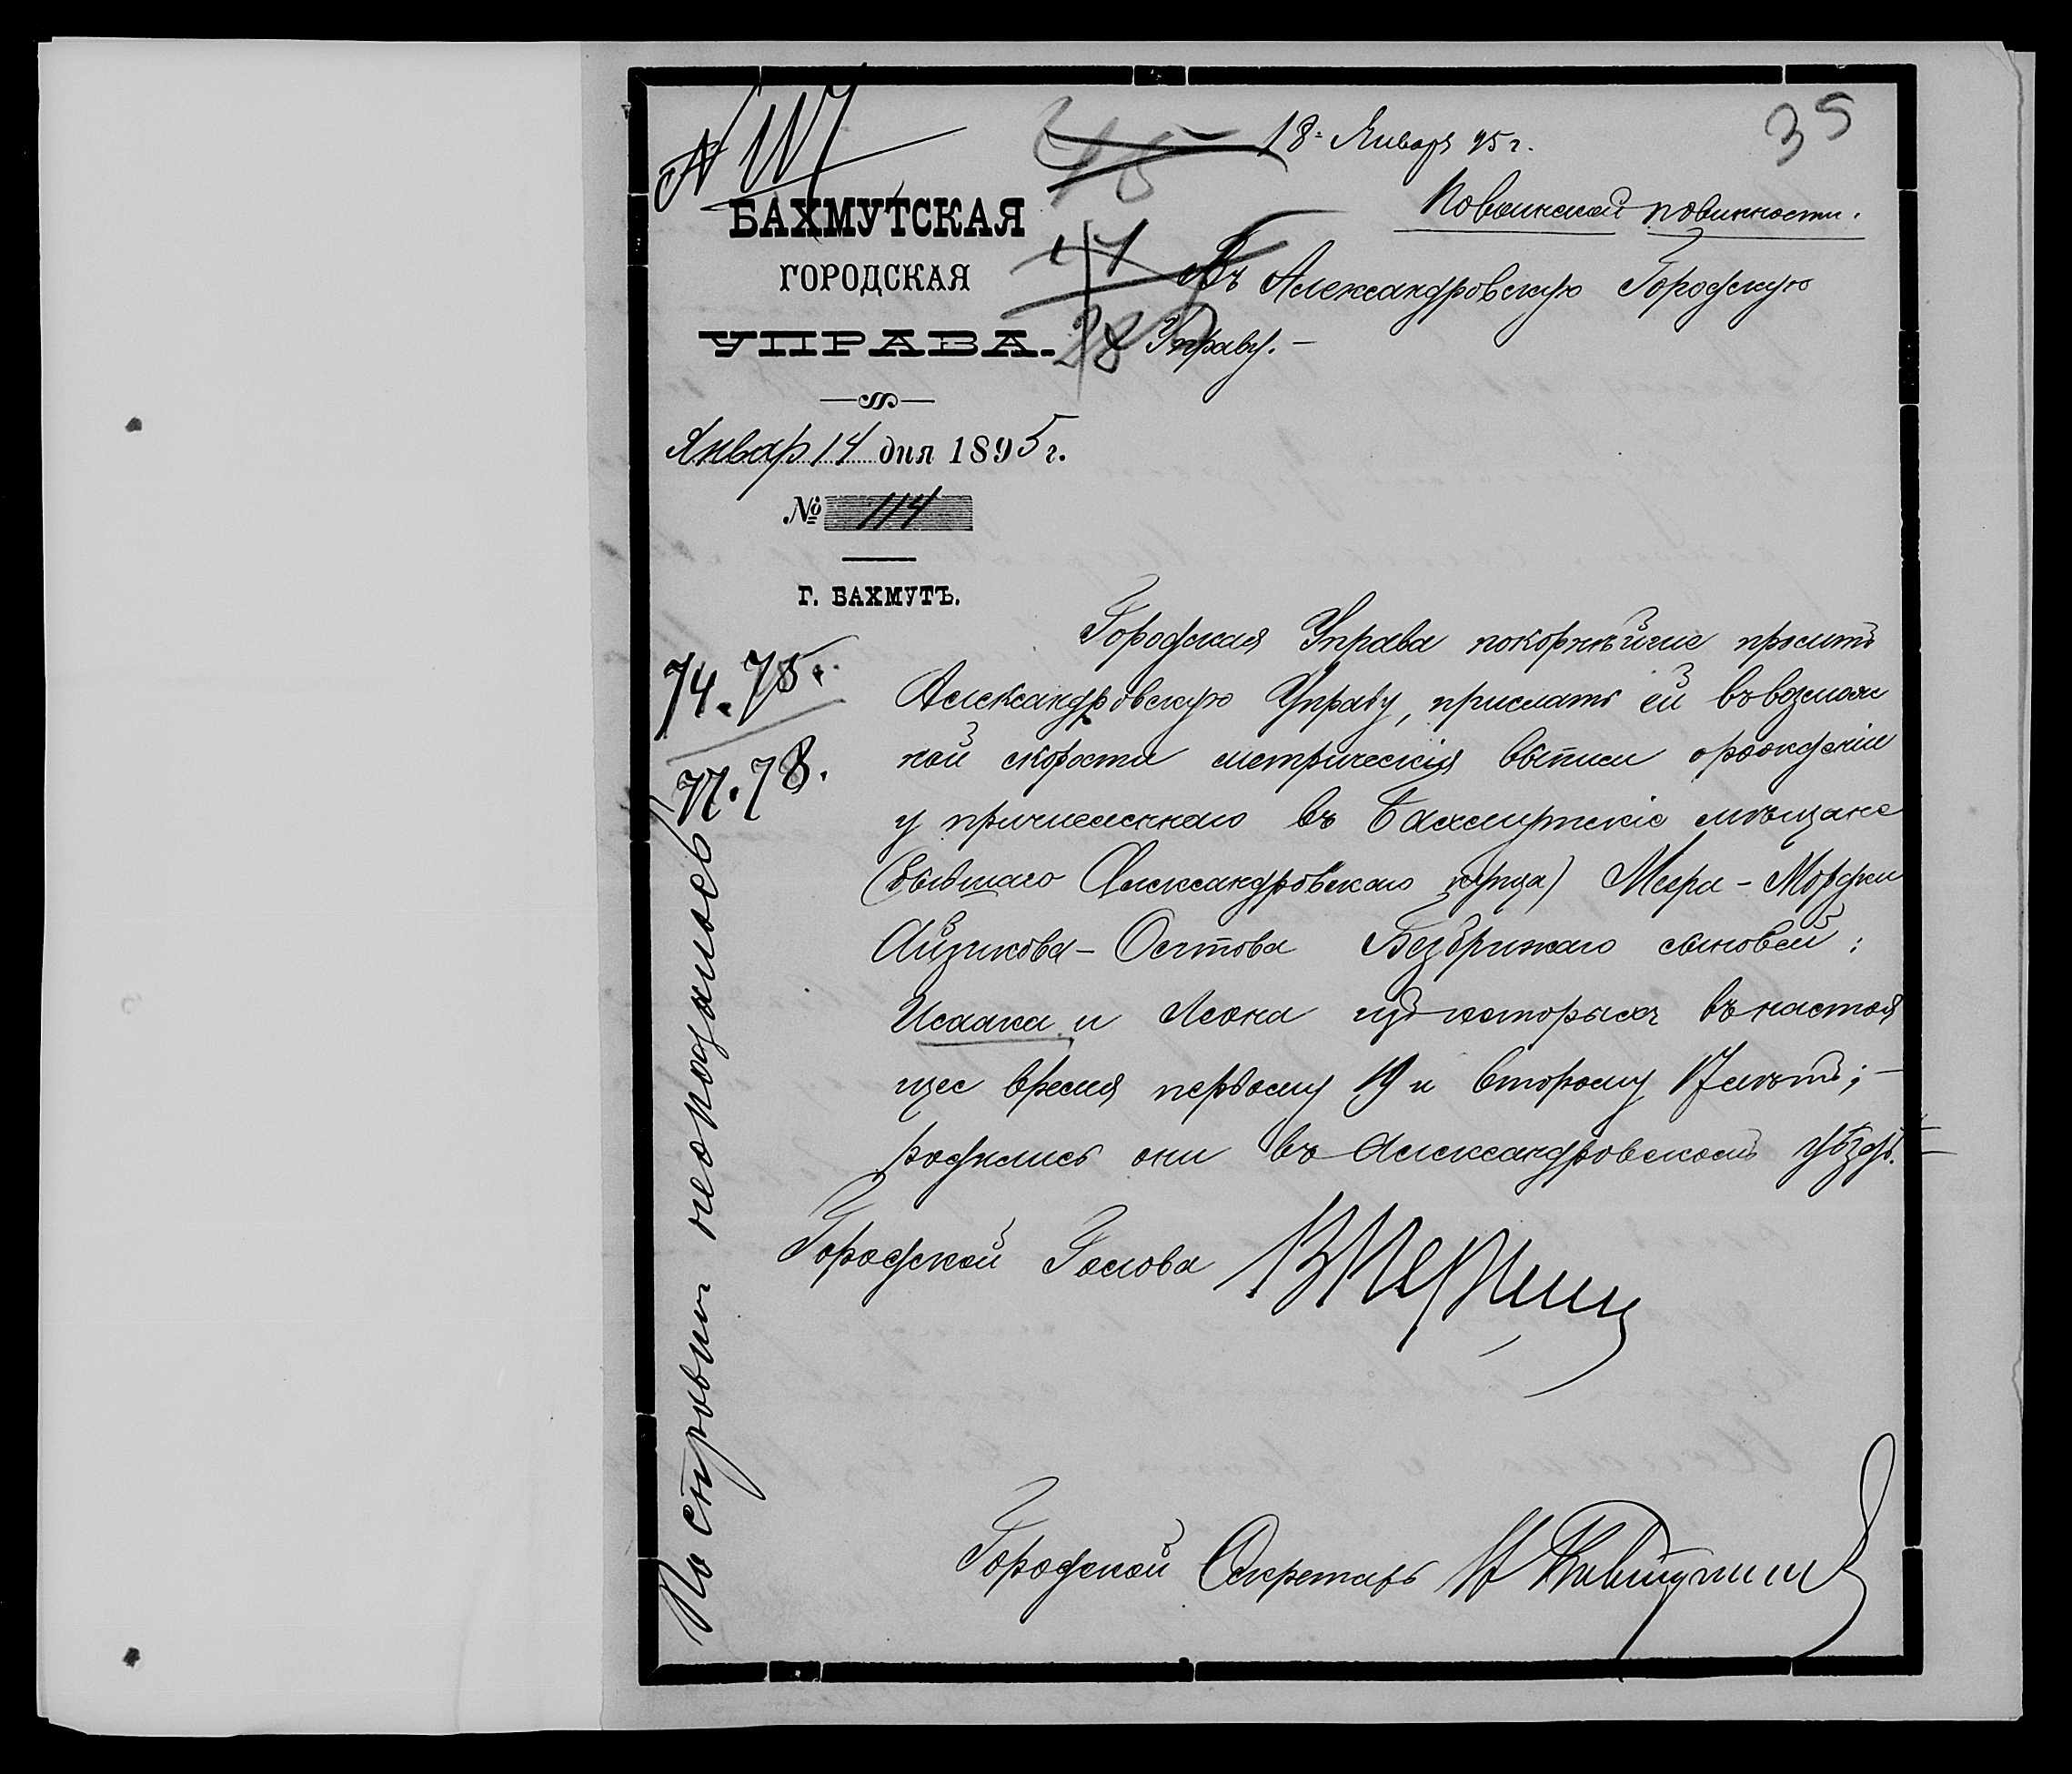 18 Января 95 г.
35
По воинской повинности.
БАХМУТСКАЯ
ГОРОДСКАЯ
УПРАВА.
Въ Александровскую Городскую
Управу. —
28
Январ 14 дня 1895 г.
№ 114
Г. БАХМУТЪ.
74. 75.
77. 78.
Городская Управа покорнѣйше проситъ
Александровскую Управу, прислать ей въ возмож
ной скорости метрическія выписи о рожденіи
у причисленнаго въ Бахмутскіе мѣщане
(бывшаго Александровскаго купца) Меера - Мордки
Айзикова - Осипова сыновей:
Исаака и Леона которыхъ въ настоя
щее время первому 19 и второму 17 лѣтъ; —
родились они въ Александровскомъ уѣздѣ. —
Городской Голова
Городской Секретарь
По справкѣ не оказалось